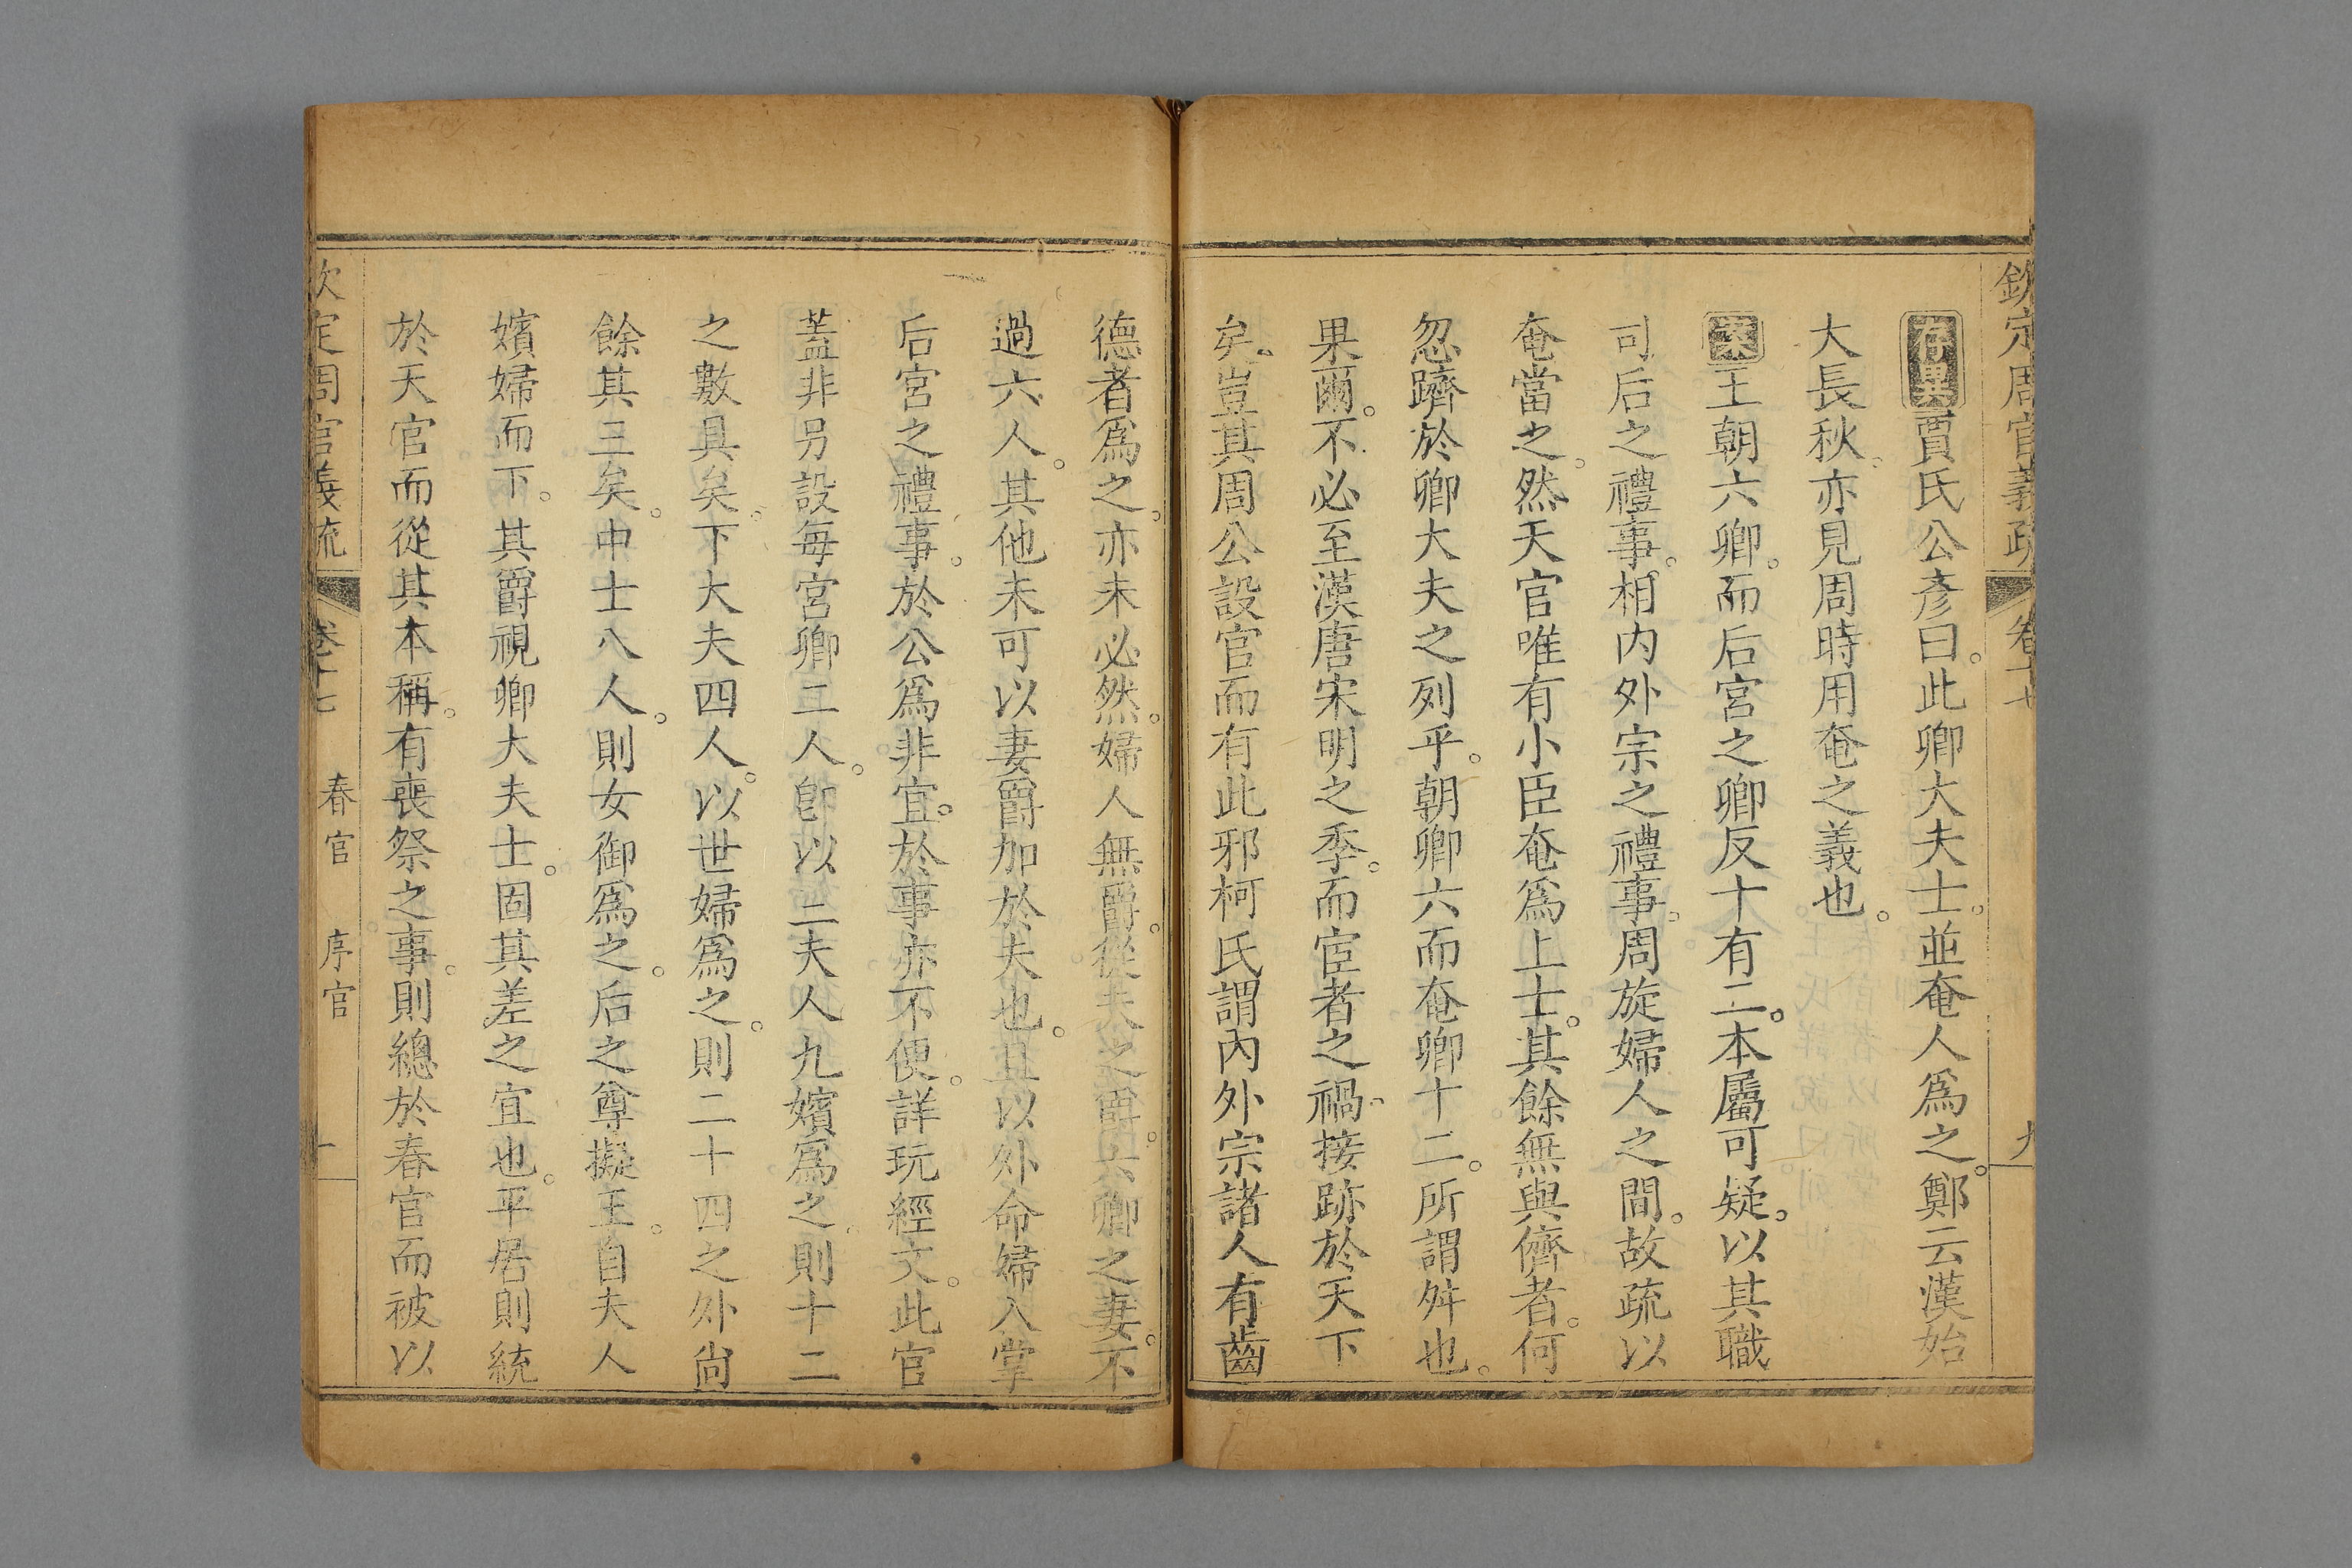 欽定周官義疏 卷十七 九
存異賈氏公彥曰。此卿大夫士。並奄人爲之。鄭云漢始
大長秋。亦見周時用奄之義也。
案王朝六卿。而后宮之卿反十有二。本屬可疑。以其職
司后之禮事。相内外宗之禮事。周旋婦人之間。故疏以
奄當之。然天官唯有小臣奄爲上士。其餘無與儕者。何
忽躋於卿大夫之列乎。朝卿六而奄卿十二。所謂舛也。
果爾。不必至漢唐宋明之季。而宦者之禍、接跡於天下
矣、豈其周公設官而有此邪柯氏謂內外宗諸人有齒
德者爲之。亦未必然。婦人無爵。從夫之爵。六卿之妻。不
過六人。其他未可以妻爵加於夫也。且以外命婦入掌
后宮之禮事。於公爲非宜。於事亦不便。詳玩經文。此官
蓋非另設每宮卿二人。卽以二夫人九嬪爲之。則十二
之數具矣。下大夫四人。以世婦爲之。則二十四之外尙
餘其三矣。中士八人。則女御爲之。后之尊擬王。自夫人
嬪婦而下。其爵視卿大夫士。固其差之宜也。平居則統
於天官而從其本稱。有喪祭之事。則總於春官而被以
欽定周官義疏 卷十七 春官 序官